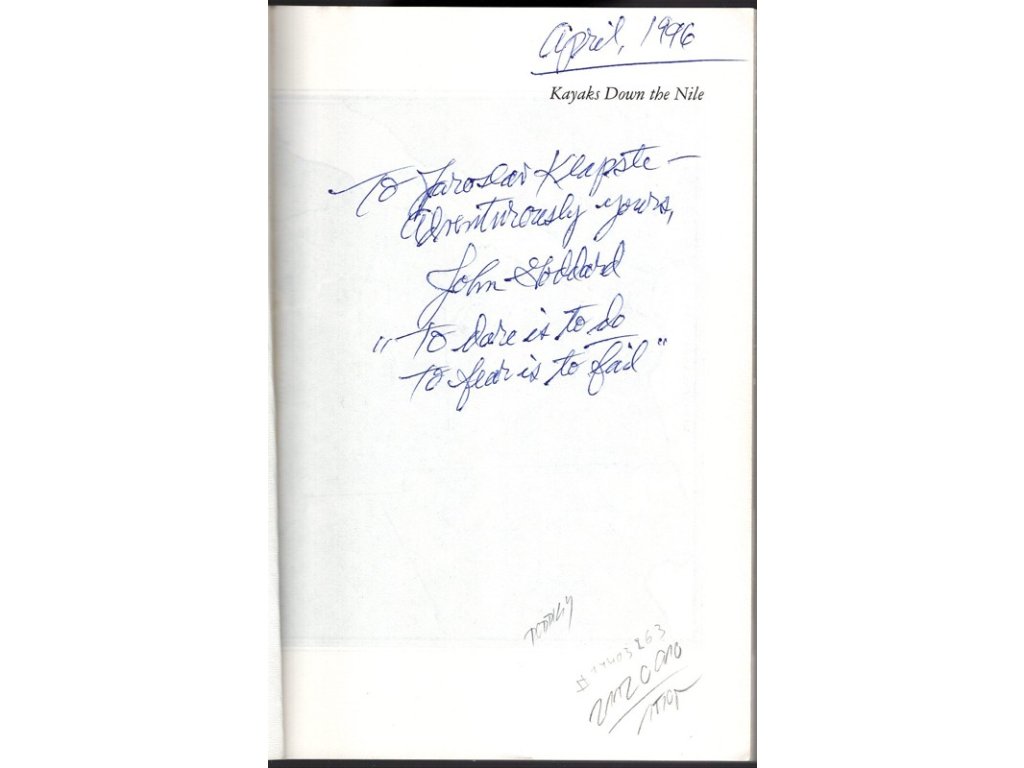 April, 1996
Kayaks Down the Nile
To Jaroslav Klapste —
Adventurously yours,
John Goddard
"To dare is to do
To fear is to fail"